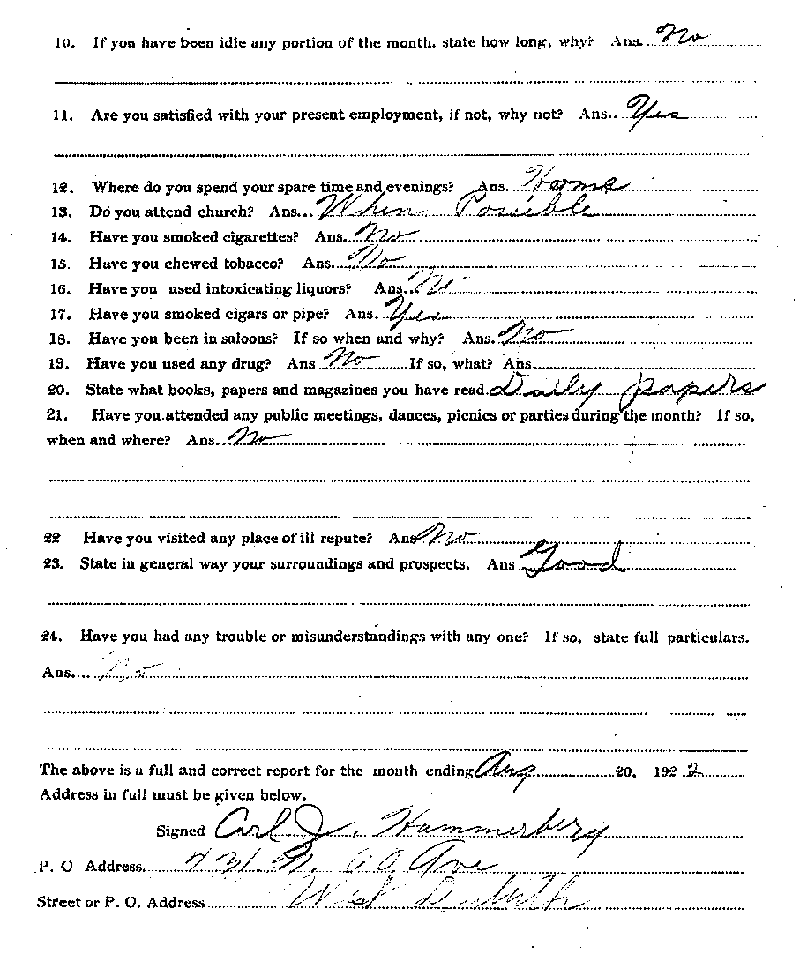 10. If you have been idle any portion of the month, state how long, why? Ans. No
11. Are you satisfied with your present employment, if not, why not? Ans.. Yes
12. Where do you spend your spare time and evenings? Ans. Home
13. Do you attend church? Ans... When Possible
14. Have you smoked cigarettes? Ans. No
15. Have you chewed tobacco? Ans. No
16. Have you used intoxicating liquors? Ans. No
17. Have you smoked cigars or pipe? Ans. Yes
18. Have you been in saloons? If so when and why? Ans. No
19. Have you used any drug? Ans No If so, what? Ans.
20. State what books, papers and magazines you have read. Daily papers
21. Have you attended any public meetings, dances, picnics or parties during the month? If so,
when and where? Ans. No
22 Have you visited any place of ill repute? Ans No
23. State in general way your surroundings and prospects. Ans Good
24. Have you had any trouble or misunderstandings with any one? If so, state full particulars.
Ans. No
The above is a full and correct report for the month ending Aug 20, 1922
Address in full must be given below.
Signed Carl J. Hammerberg
P. O Address. N. Ave
Street or P. O. Address West Duluth